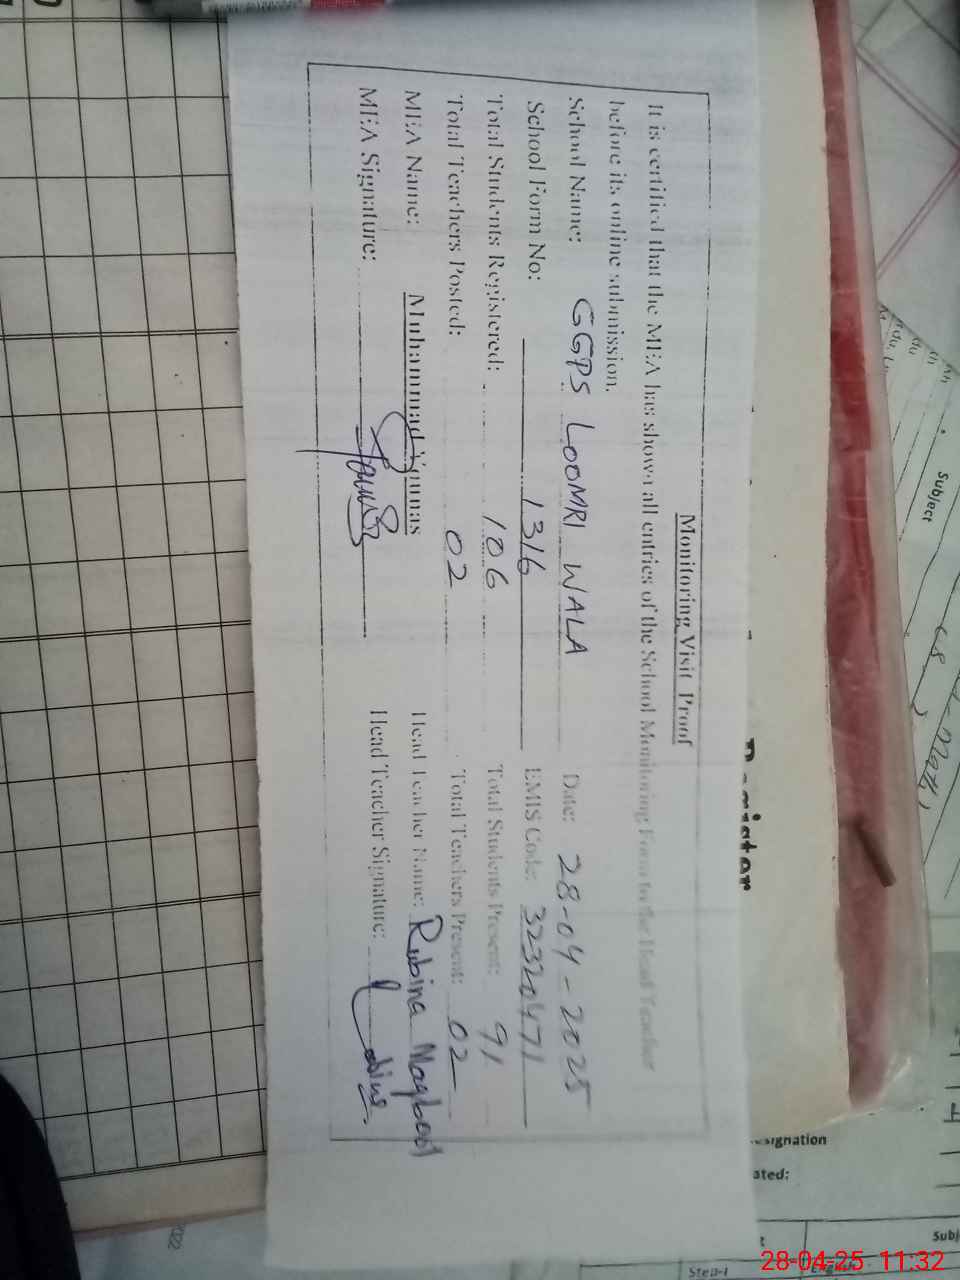 Monitoring Visit Proof
It is certified that the MEA has shown all entries of the School Monitoring Form to the Head Teacher
before its online submission.
School Name: GGPS LOOMRI WALA Date: 28-04-2025
School Form No: 1316 EMIS Code: 32320471
Total Students Registered: 106 Total Students Present: 91
Total Teachers Posted: 02 Total Teachers Present: 02
MEA Name: Muhammad Younas Head Teacher Name: Rubina Maqbool
MEA Signature: Head Teacher Signature:
Register
Subject
esignation
ated:
Subj
Step-I English
2022
28-04-25 11:32